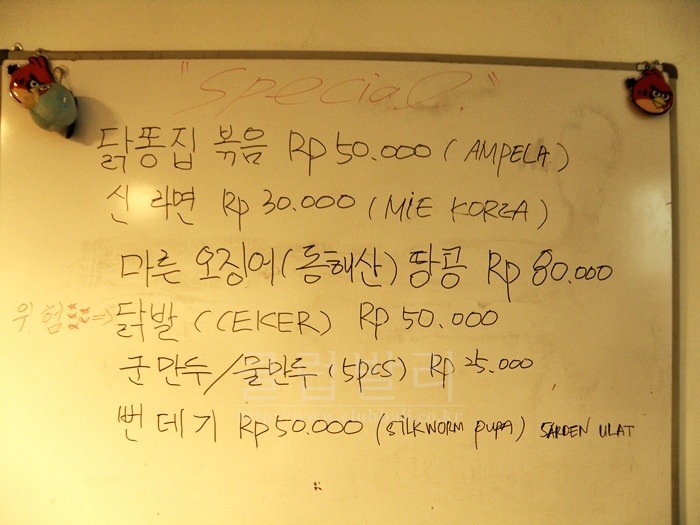 "Special."
닭똥집 볶음 Rp 50.000 (AMPELA)
신 라면 Rp 30.000 (MIE KOREA)
마른 오징어(동해산) 땅콩 Rp 80.000
위험 => 닭발 (CEKER) Rp 50.000
군만두/물만두 (5pcs) Rp 25.000
번데기 Rp 50.000 (SILKWORM PUPA) SARDEN ULAT
클럽발리